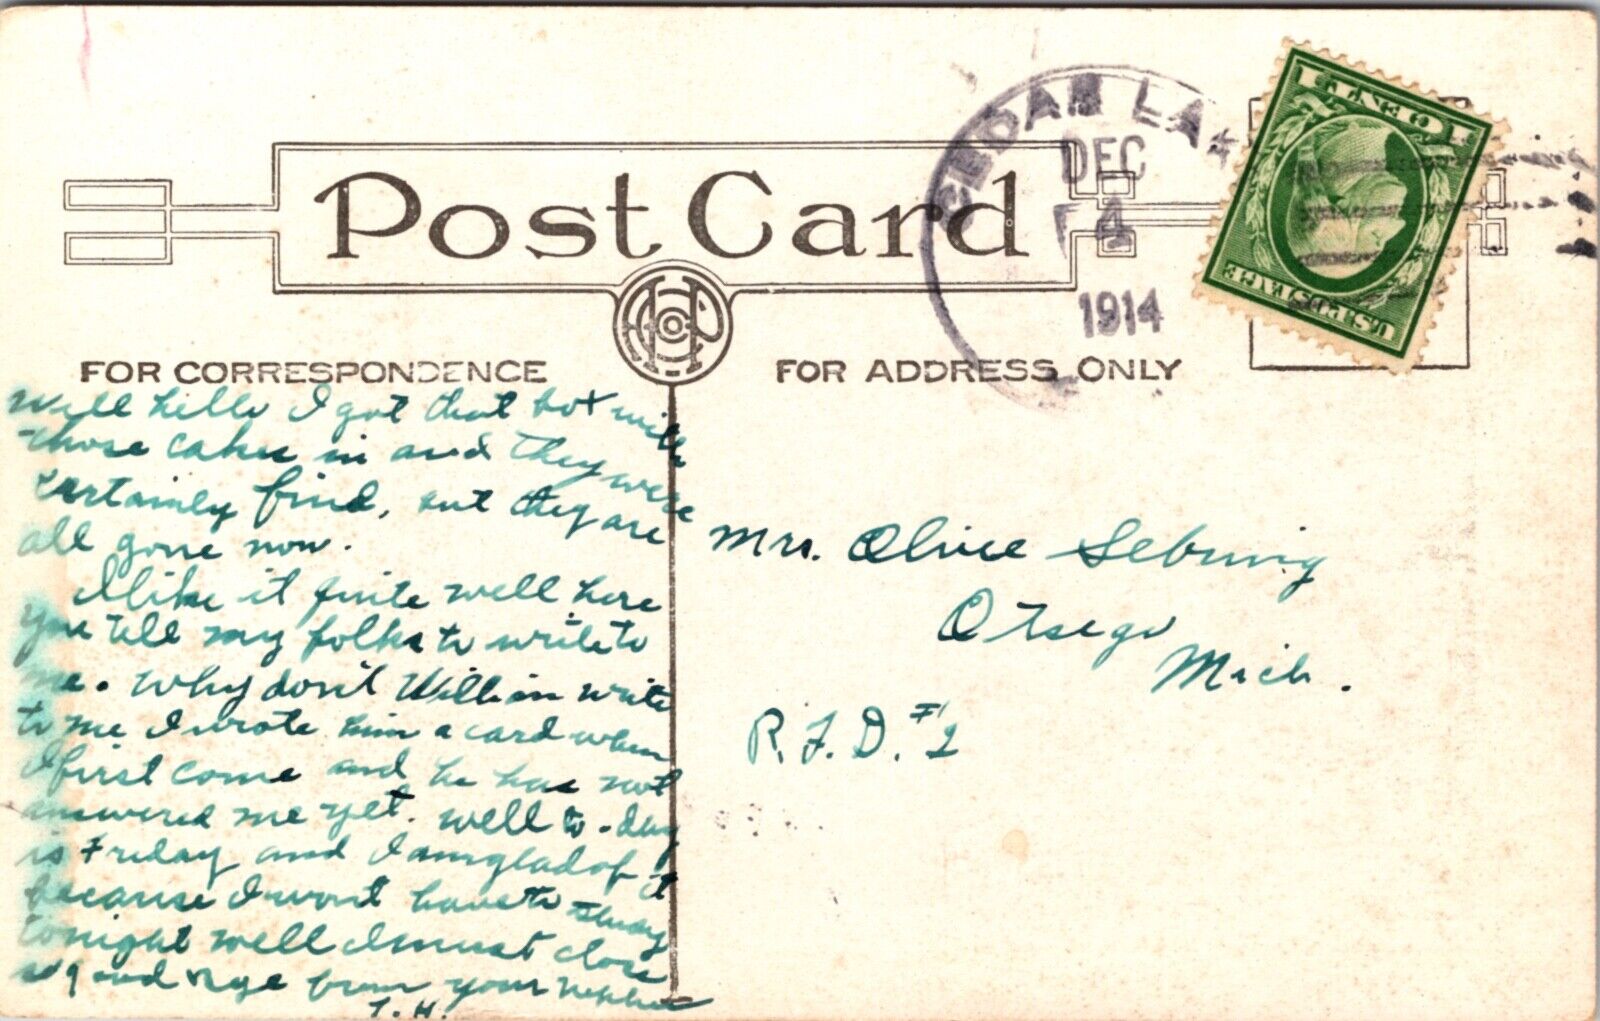 CEDAR LA
DEC
4
1914
1 CENT 1
U.S. POSTAGE
Post Card
FOR CORRESPONDENCE
FOR ADDRESS ONLY
Well hello I got that box with
those cakes in and they were
certainly fine, but they are
all gone now.
I like it quite well here
you tell my folks to write to
me. Why don't William write
to me I wrote him a card when
I first come and he has not
answered me yet. well to-day
is Friday and I am glad of it
because I wont have to study
tonight well I must close
good bye from your Nephew
T.H.
Mrs. Olive Sebring
Otsego
Mich.
R.F.D. #2